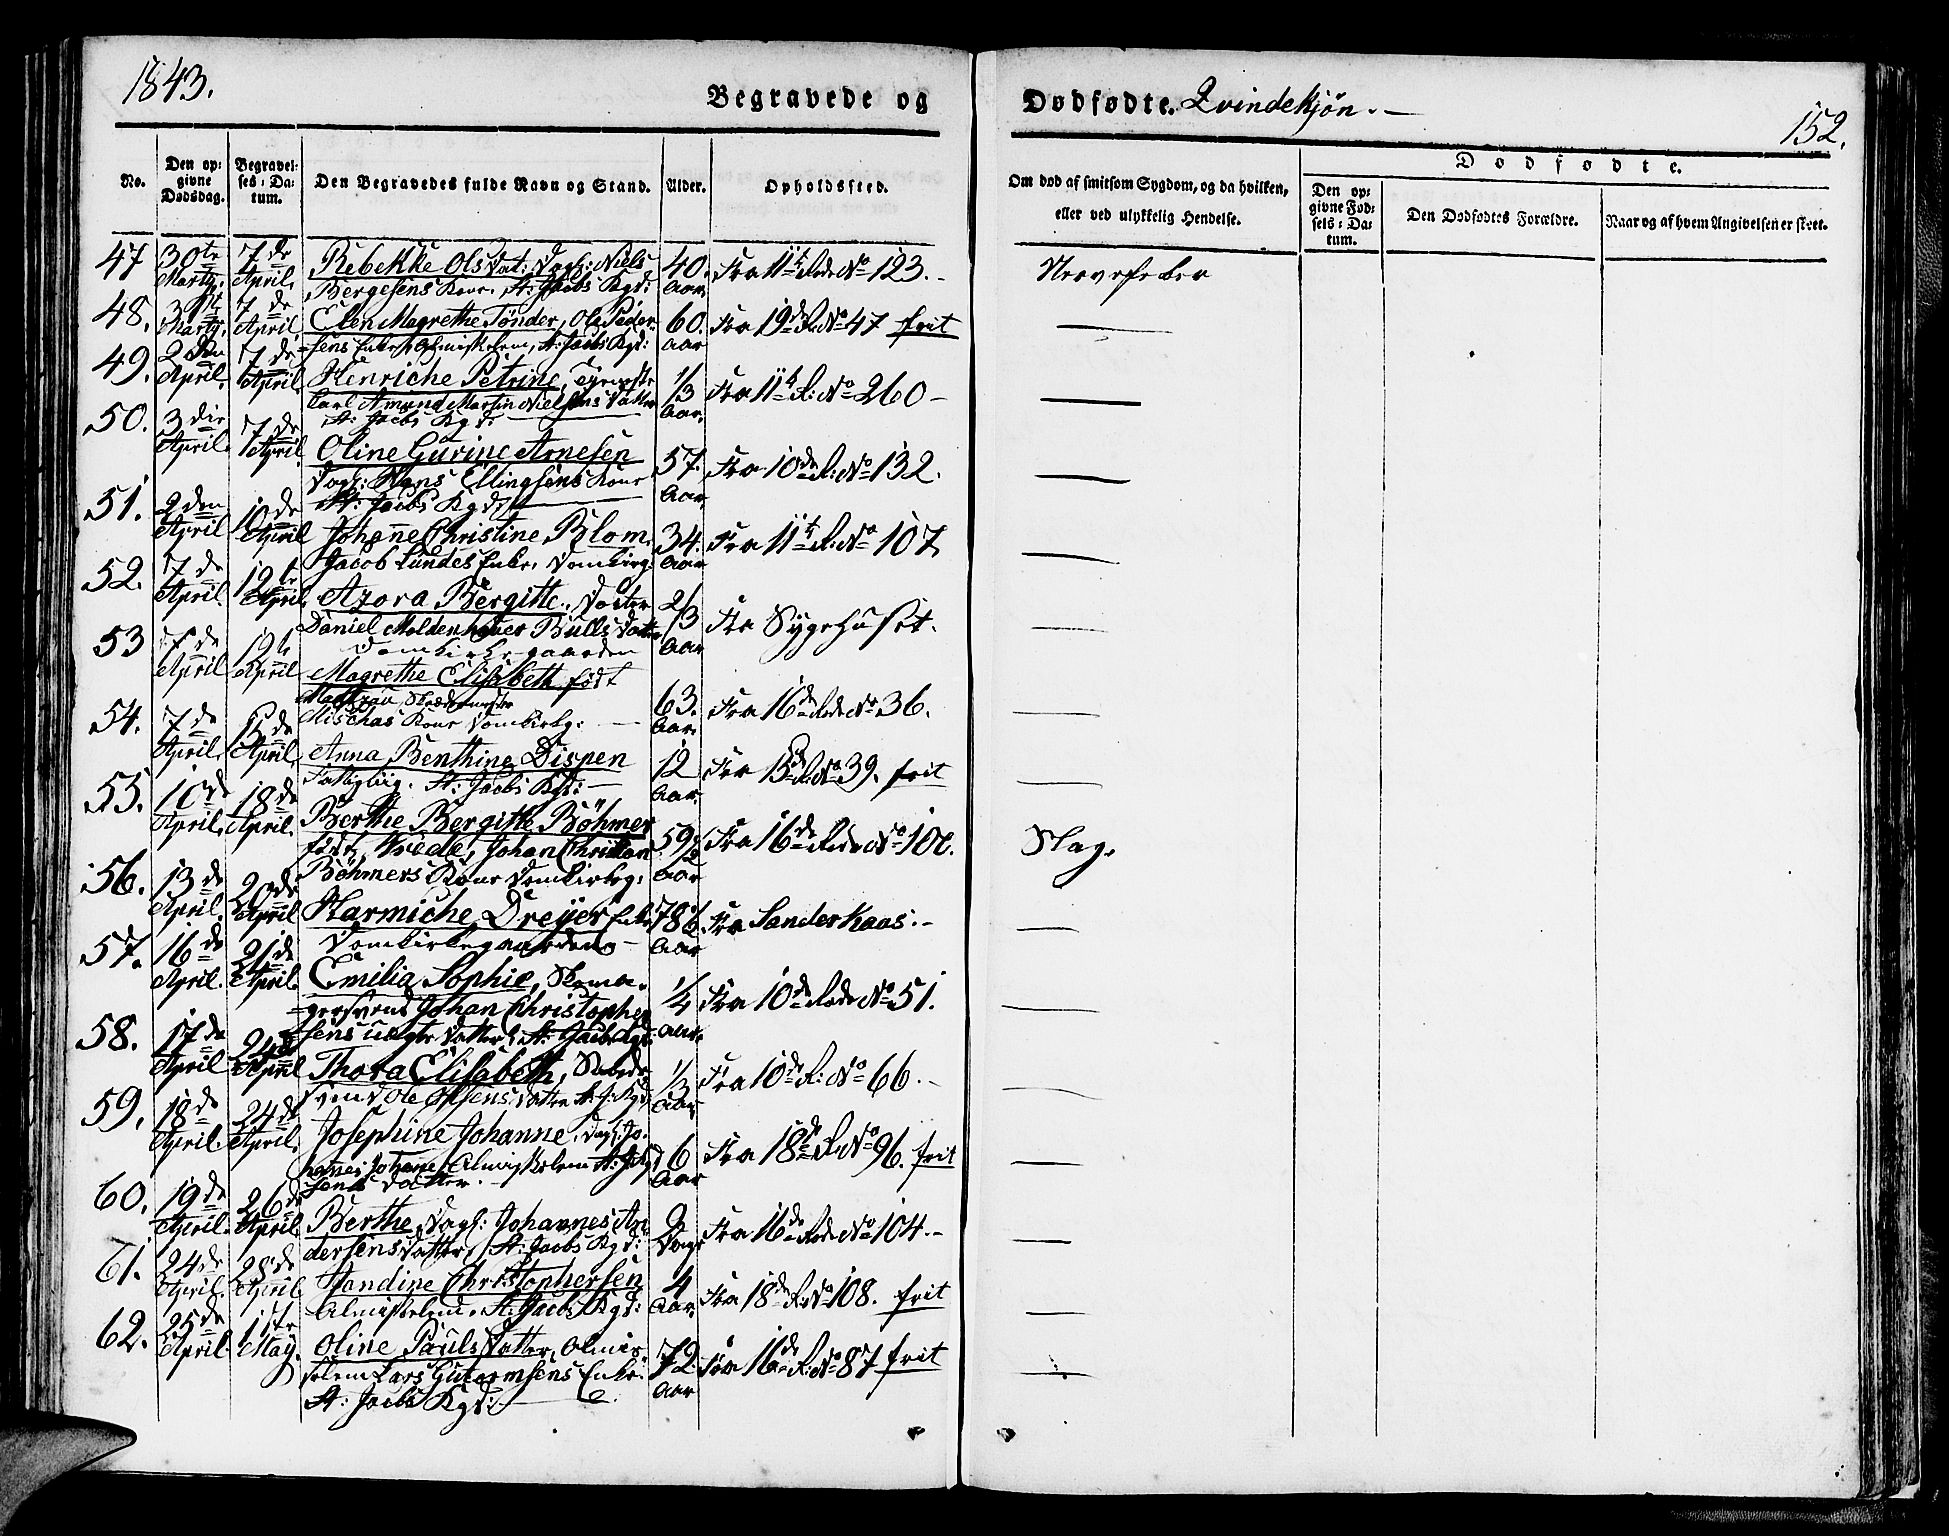 1843.
Begravede og
Dødfødte. Qvindekjøn. —
152.
No.
Den op-
givne
Dødsdag.
Begravel-
ses-Da-
tum.
Den Begravedes fulde Navn og Stand.
Alder.
Opholdsfted.
Om død af smitsom Sygdom, og da hvilken,
eller ved ulykkelig Hendelse.
Dødfødte.
Den op-
givne Fød-
sels-Da-
tum.
Den Dødfødtes Forældre.
Naar og af hvem Angivelsen er skeet.
47 30te Marty. 7de April. Rebekke Olsdat: Dagl: Niels 40. Aar. Fra 11te Rode No 123. — Nervefeber
Bergesens Kone. St: Jacobs Kgd:
48. 31te Marty. 7de April Elen Magrethe Tönder, Ole Peder- 60. Aar Fra 19de R: No 47 frit
sens Enke, Almisselem, St: Jacobs Kgd:
49. 2den April. 7de April Henriche Petrine, 1/3 Aar. Fra 11te R: No 260 —
Carl Amund Martin Nielsens Datter
St: Jacobs Kgd:
50. 3die April. 7de April. Oline Gurine Arnesen 57. Aar. Fra 10de R: No 132.
Dagl: Hans Ellingsens Kone
St: Jacobs Kgd:
51. 2den April 10de April Johanne Christine Blom. 34. Aar Fra 11te R: No 107
Jacob Lundes Enke. Domkirkg:
52. 7de April. 12te April. Azora Bergitte, Doctor 2/3 Aar Fra Sygehuset.
Daniel Moldenhauer Bulls Datter
Domkirkegaarden
53 7de April 12te April Magrethe Elisabeth født 63. Aar. Fra 16de Rode No 36.
Mischas Kone Domkirkg:
54. 7de April. 15de April. Anna Benthine Dispen 12 Aar. Fra 15de R: No 39. frit
Fattiglig. St: Jacobs Kgd:
55. 10de April. 18de April. Berthe Bergitte Böhmer 59 1/2 Aar Fra 16de Rode No 100. Slag.
født Wrede, Johan Christian
Böhmers Kone Domkirkg:
56. 13de April. 20de April Harmiche Dreyer Enke 78 1/2 Aar Fra Sanderkaas. —
Domkirkegaarden
57. 16de April. 21de April. Emilia Sophie, Skoma- 1/4 Aar. Fra 10de Rode No 51.
gersvend Johan Christopher-
sens uægte Datter, St: Jacobs Kgd:
58. 17de April 24de April Thora Elisabeth, 1/3 Aar Fra 10de R: No 66. —
Svend Ole Olsens Datter St: J: Kgd:
59. 18de April. 24de April. Josephine Johanne, Dagl: Jo- 6 Aar Fra 18de R: No 96. frit
sens Datter.
60. 19de April. 26de April. Berthe, Dagl: Johannes An 9 Dage Fra 16de Rode No 104. —
dersens Datter, St: Jacobs Kgd:
61. 24de April. 28de April Handine Christophersen 4 Aar. Fra 18de R: No 108. frit
Almisselem. St: Jacobs Kgd:
62. 25de April. 1ste May. Oline Pauls Datter, Almis- 72. Aar Fra 16de R: No 87 frit
selem Lars Gutormsens Enke.
St: Jacobs Kgd: